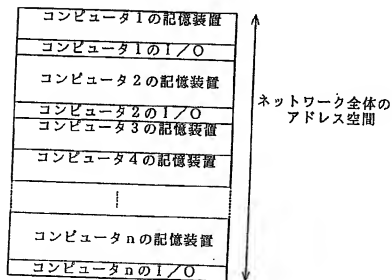 コンピュータ1の記憶装置
コンピュータ1のI/O
コンピュータ2の記憶装置
コンピュータ2のI/O
コンピュータ3の記憶装置
コンピュータ4の記憶装置
コンピュータnの記憶装置
コンピュータnのI/O
ネットワーク全体の
アドレス空間